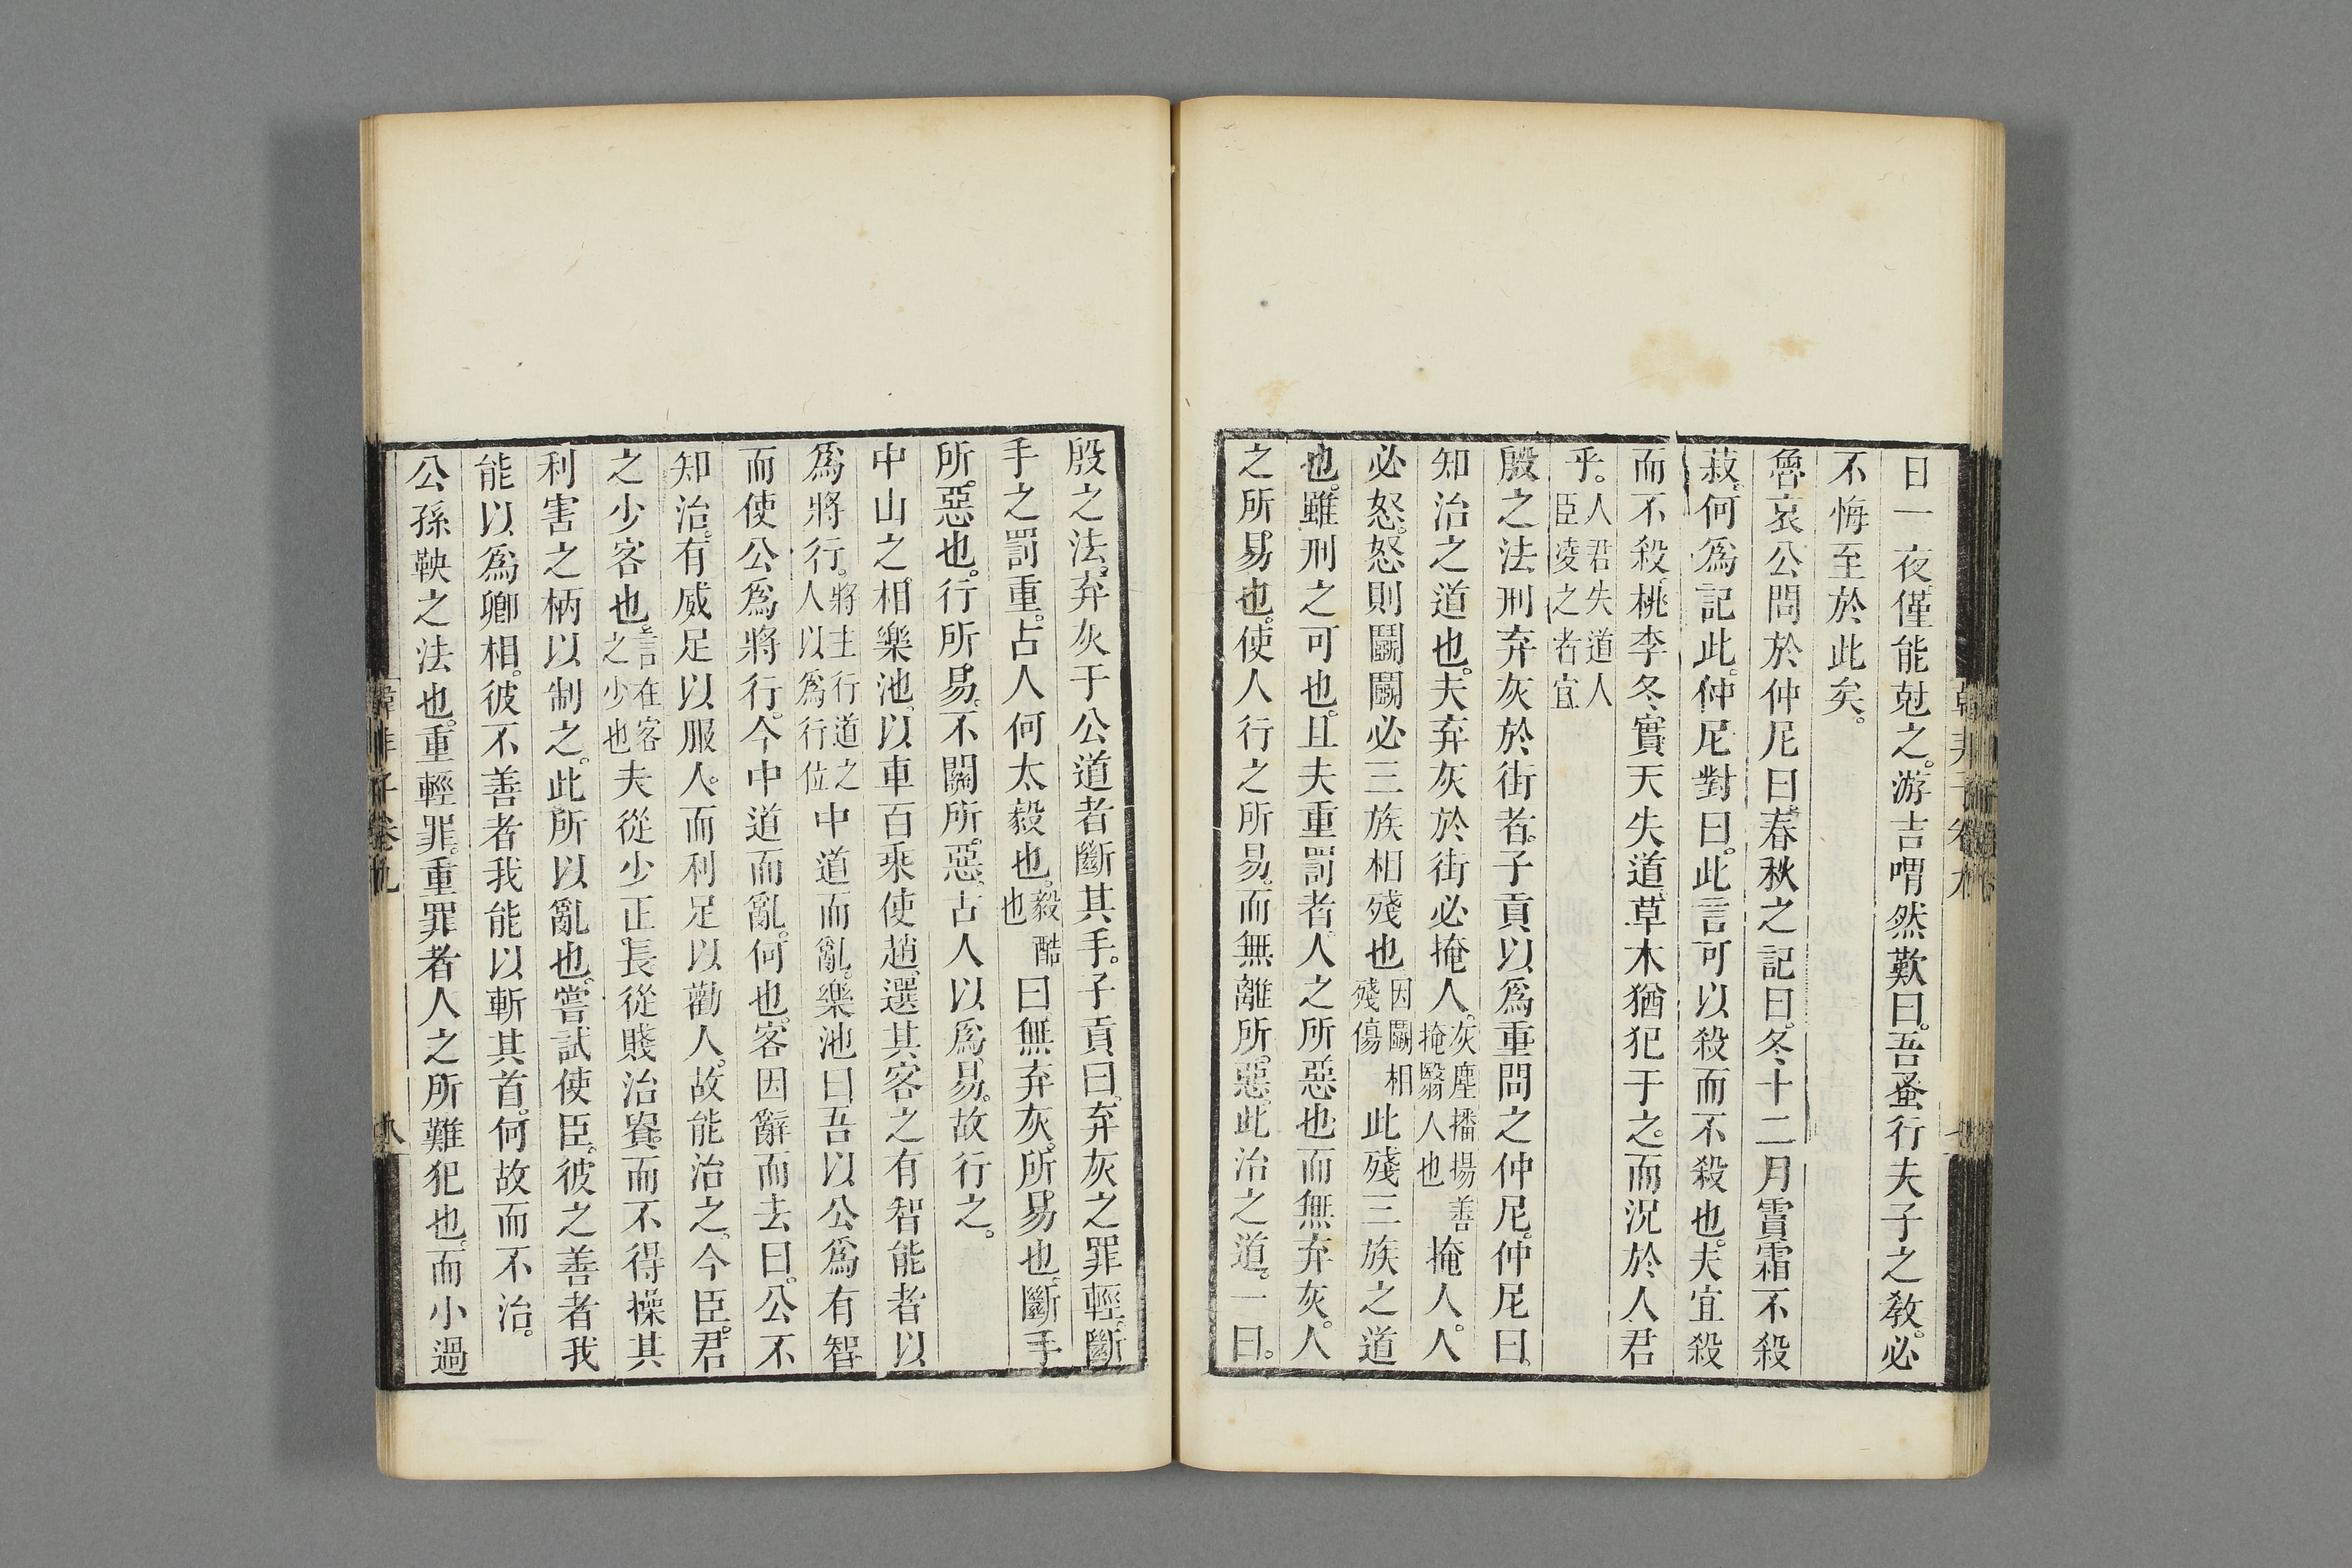 日一夜僅能尅之。游吉喟然歎曰。吾蚤行夫子之教。必
不悔至於此矣。
魯哀公問於仲尼曰。春秋之記曰。冬十二月霣霜不殺
菽。何爲記此。仲尼對曰。此言可以殺而不殺也。夫宜殺
而不殺。桃李冬實。天失道。草木猶犯于之。而況於人君
乎。人君失道人臣凌之者宜
殷之法刑弃灰於街者。子貢以爲重問之仲尼。仲尼曰。
知治之道也。夫弃灰於街必掩人。灰塵播揚善掩翳人也掩人。人
必怒。怒則鬭鬭必三族相殘也因鬭相殘傷此殘三族之道
也。雖刑之可也。且夫重罰者。人之所惡也。而無弃灰。人
之所易也。使人行之所易。而無離所惡。此治之道。一曰。
殷之法。弃灰于公道者斷其手。子貢曰。弃灰之罪輕。斷
手之罰重。古人何太毅也。毅酷也曰無弃灰。所易也。斷手
所惡也。行所易。不關所惡。古人以爲易。故行之。
中山之相樂池。以車百乘使趙。選其客之有智能者以
爲將行。將主行道之人以爲行位中道而亂。樂池曰吾以公爲有智
而使公爲將行。今中道而亂。何也。客因辭而去曰。公不
知治。有威足以服人。而利足以勸人。故能治之。今臣。君
之少客也。言在客之少也夫從少正長從賤治貴。而不得操其
利害之柄以制之。此所以亂也。嘗試使臣。彼之善者我
能以爲卿相。彼不善者我能以斬其首。何故而不治。
公孫鞅之法也。重輕罪。重罪者人之所難犯也。而小過
韓非子卷九
八
韓非子卷九
七